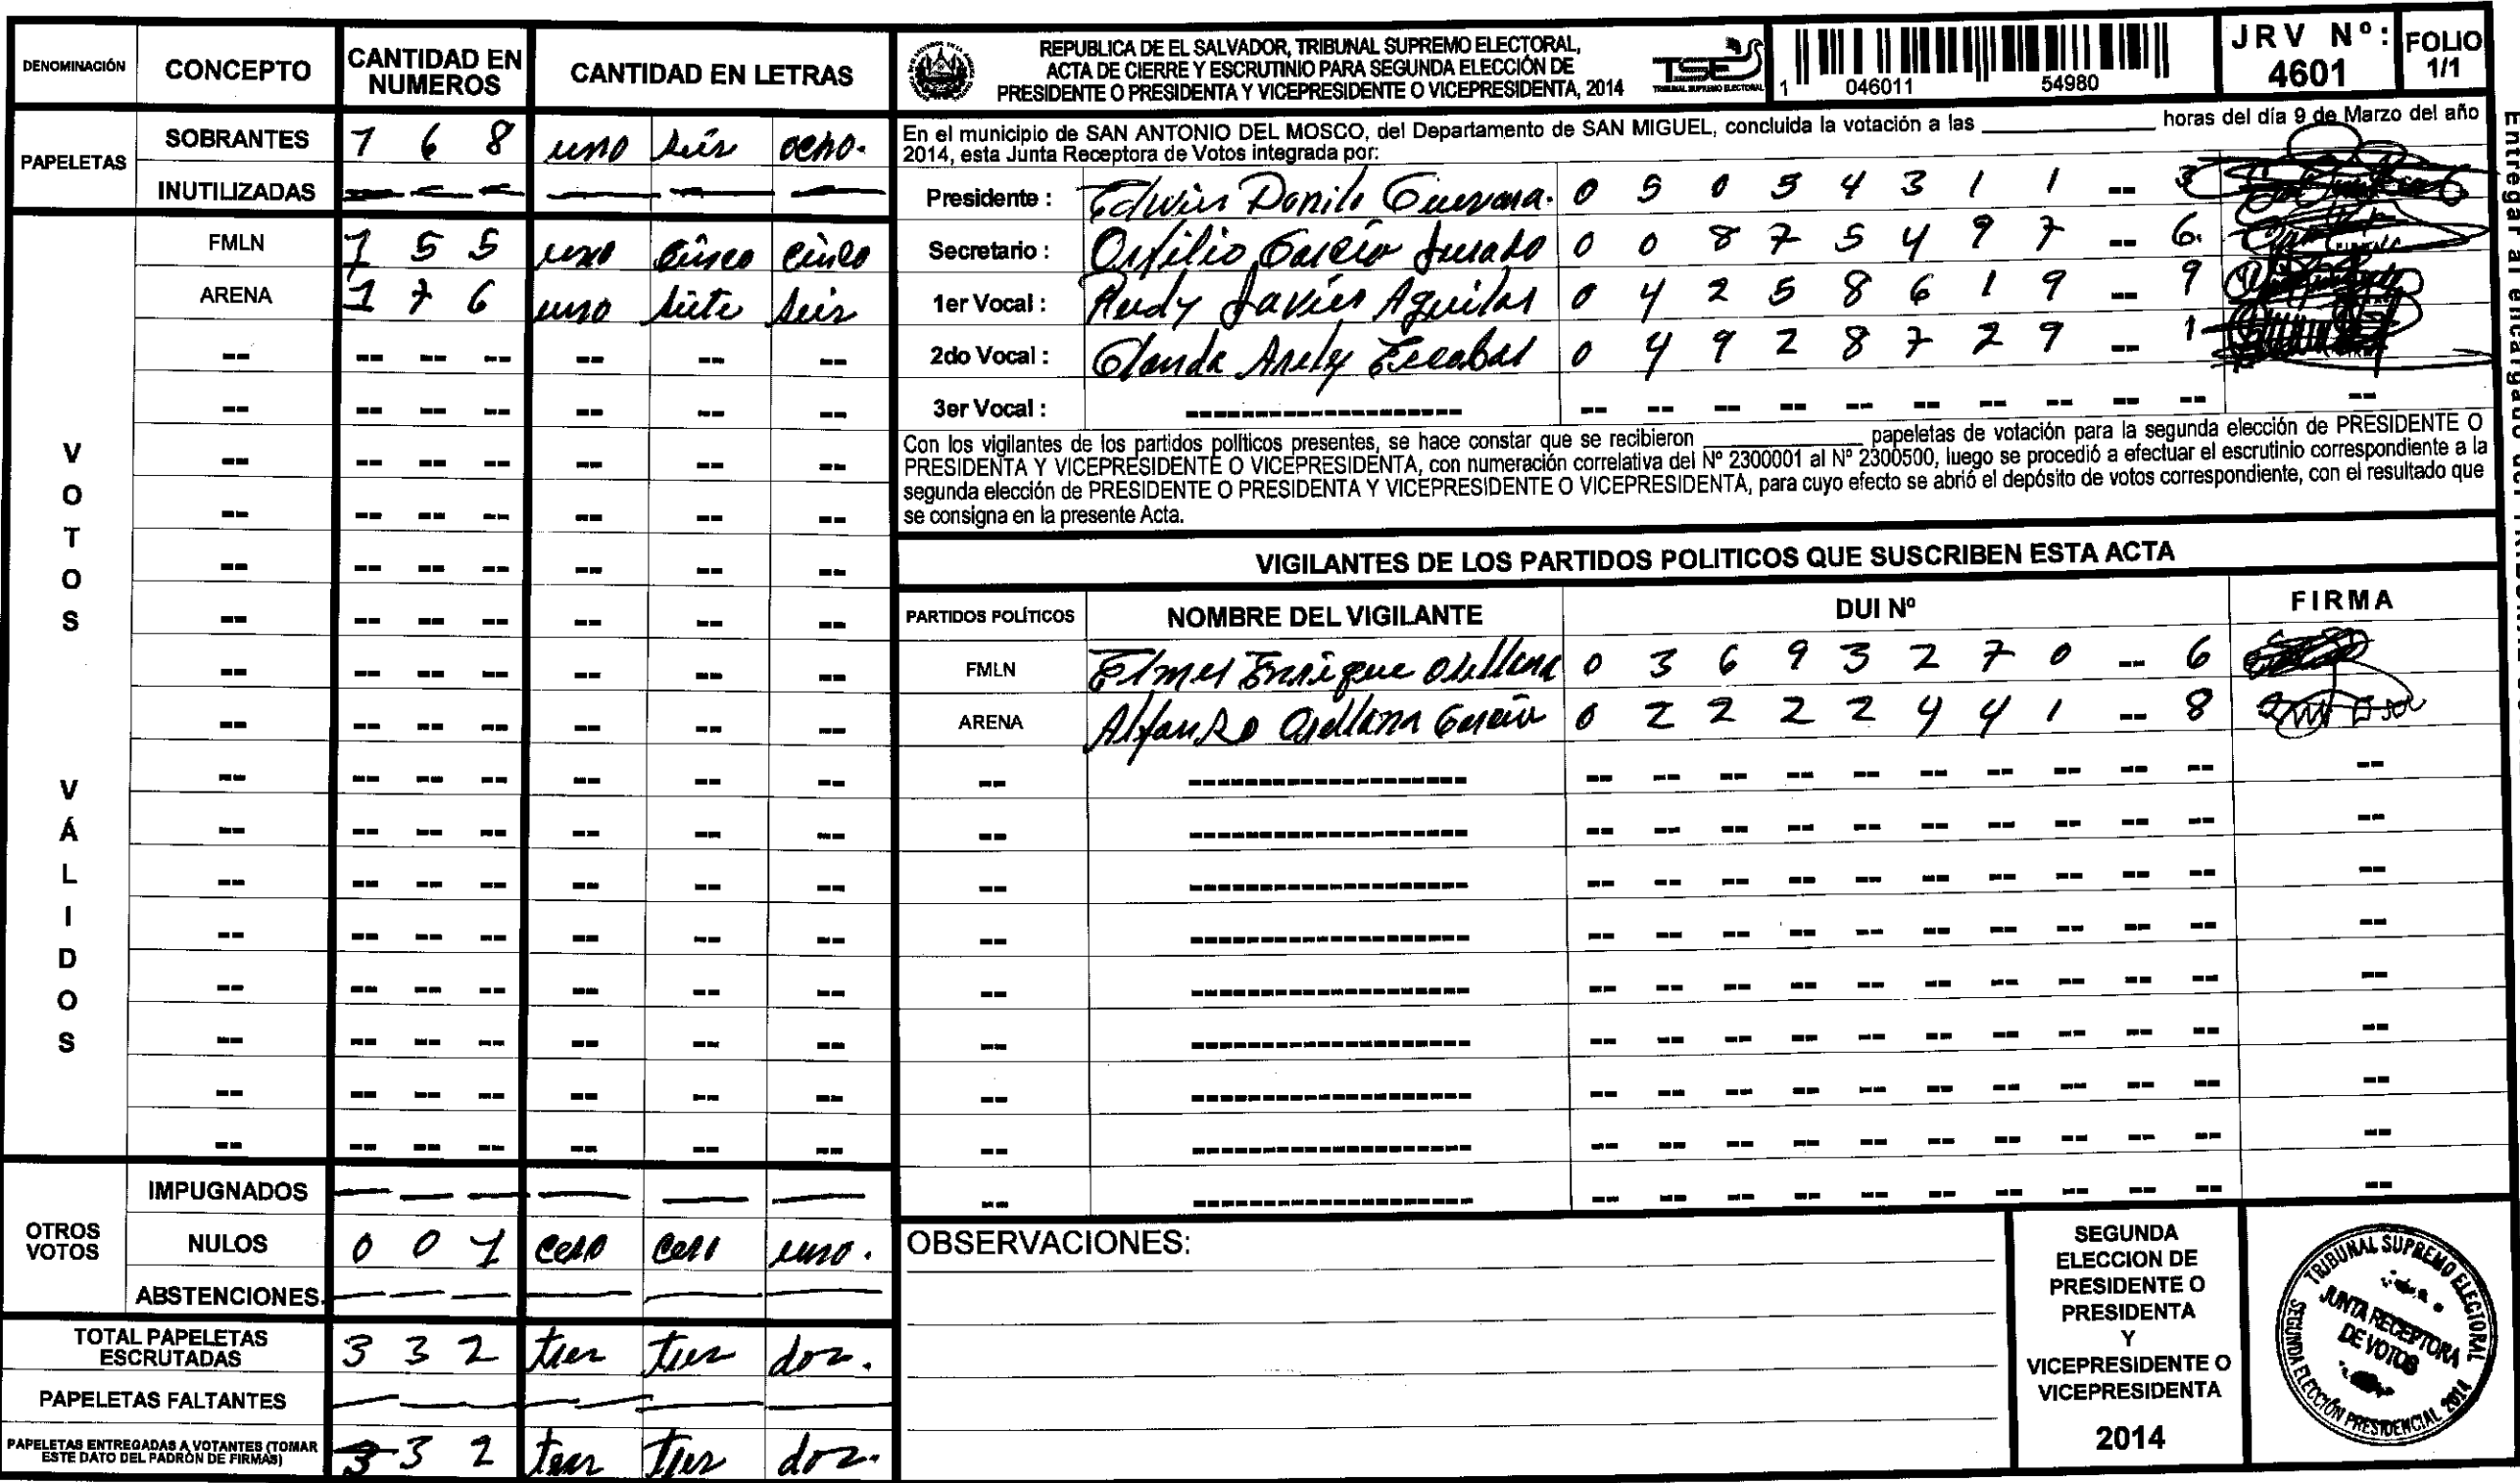 DENOMINACIÓN CONCEPTO CANTIDAD EN NUMEROS CANTIDAD EN LETRAS
PAPELETAS
SOBRANTES 1 6 8 uno seis ocho.
INUTILIZADAS -- -- -- -- -- --
VOTOS VÁLIDOS
FMLN 1 5 5 uno cinco cinco
ARENA 1 7 6 uno siete seis
OTROS VOTOS
IMPUGNADOS — — — — — —
NULOS 0 0 1 cero cero uno.
ABSTENCIONES. — — — — — —
TOTAL PAPELETAS ESCRUTADAS 3 3 2 tres tres dos.
PAPELETAS FALTANTES — — — — — —
PAPELETAS ENTREGADAS A VOTANTES (TOMAR ESTE DATO DEL PADRÓN DE FIRMAS) 3 3 2 tres tres dos.
REPUBLICA DE EL SALVADOR, TRIBUNAL SUPREMO ELECTORAL,
ACTA DE CIERRE Y ESCRUTINIO PARA SEGUNDA ELECCIÓN DE
PRESIDENTE O PRESIDENTA Y VICEPRESIDENTE O VICEPRESIDENTA, 2014
TSE
TRIBUNAL SUPREMO ELECTORAL
1 046011 54980
JRV Nº: 4601
FOLIO 1/1
En el municipio de SAN ANTONIO DEL MOSCO, del Departamento de SAN MIGUEL, concluida la votación a las ________ horas del día 9 de Marzo del año
2014, esta Junta Receptora de Votos integrada por:
Presidente : Edwin Danilo Guevara. 0 5 0 5 4 3 1 1 -- 3
Secretario : Orfilio García Jurado 0 0 8 7 5 4 9 7 -- 6.
1er Vocal : Rudy Javier Aguilar 0 4 2 5 8 6 1 9 -- 9
2do Vocal : Glenda Arely Escobar 0 4 9 2 8 7 2 9 -- 1
3er Vocal : -- -- -- -- -- -- -- -- -- --
Con los vigilantes de los partidos políticos presentes, se hace constar que se recibieron ________ papeletas de votación para la segunda elección de PRESIDENTE O
PRESIDENTA Y VICEPRESIDENTE O VICEPRESIDENTA, con numeración correlativa del Nº 2300001 al Nº 2300500, luego se procedió a efectuar el escrutinio correspondiente a la
segunda elección de PRESIDENTE O PRESIDENTA Y VICEPRESIDENTE O VICEPRESIDENTA, para cuyo efecto se abrió el depósito de votos correspondiente, con el resultado que
se consigna en la presente Acta.
VIGILANTES DE LOS PARTIDOS POLITICOS QUE SUSCRIBEN ESTA ACTA
PARTIDOS POLÍTICOS NOMBRE DEL VIGILANTE DUI Nº FIRMA
FMLN Elmer Enrique Orellana 0 3 6 9 3 2 7 0 -- 6
ARENA Alfonso Orellana García 0 2 2 2 2 4 4 1 -- 8
OBSERVACIONES:
SEGUNDA
ELECCION DE
PRESIDENTE O
PRESIDENTA
Y
VICEPRESIDENTE O
VICEPRESIDENTA
2014
TRIBUNAL SUPREMO ELECTORAL
JUNTA RECEPTORA
DE VOTOS
SEGUNDA ELECCIÓN PRESIDENCIAL 2014
Entregar al encargado del